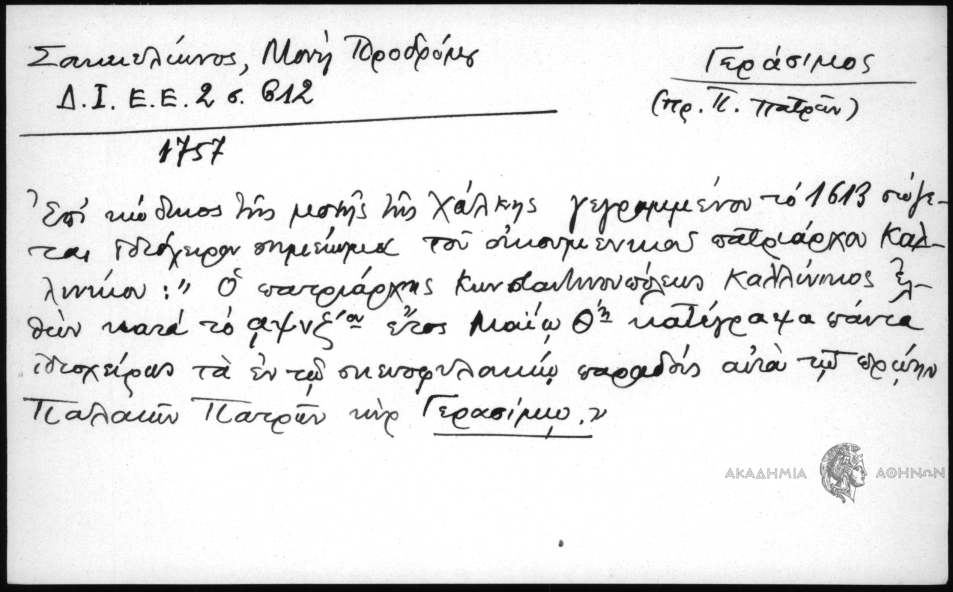 Σακκελίωνος, Μονή Προδρόμου
Γεράσιμος
Δ.Ι.Ε.Ε. 2 σ. 612
(πρ. Π. Πατρῶν)
1757
Ἐπί κώδικος τῆς μονῆς τῆς Χάλκης γεγραμμένου τό 1613 σώζε-
ται ἰδιόχειρον σημείωμα τοῦ οἰκουμενικοῦ πατριάρχου Καλ-
λινίκου: " Ὁ πατριάρχης Κωνσταντινουπόλεως Καλλίνικος ἐλ-
θών κατά τό αψνζ΄ον ἔτος Μαΐῳ θῃ κατέγραψα πάντα
ἰδιοχείρως τὰ ἐν τῷ σκευοφυλακίῳ παραδούς αὐτὰ τῷ πρῴην
Παλαιῶν Πατρῶν κὺρ Γερασίμῳ."
ΑΚΑΔΗΜΙΑ ΑΘΗΝΩΝ